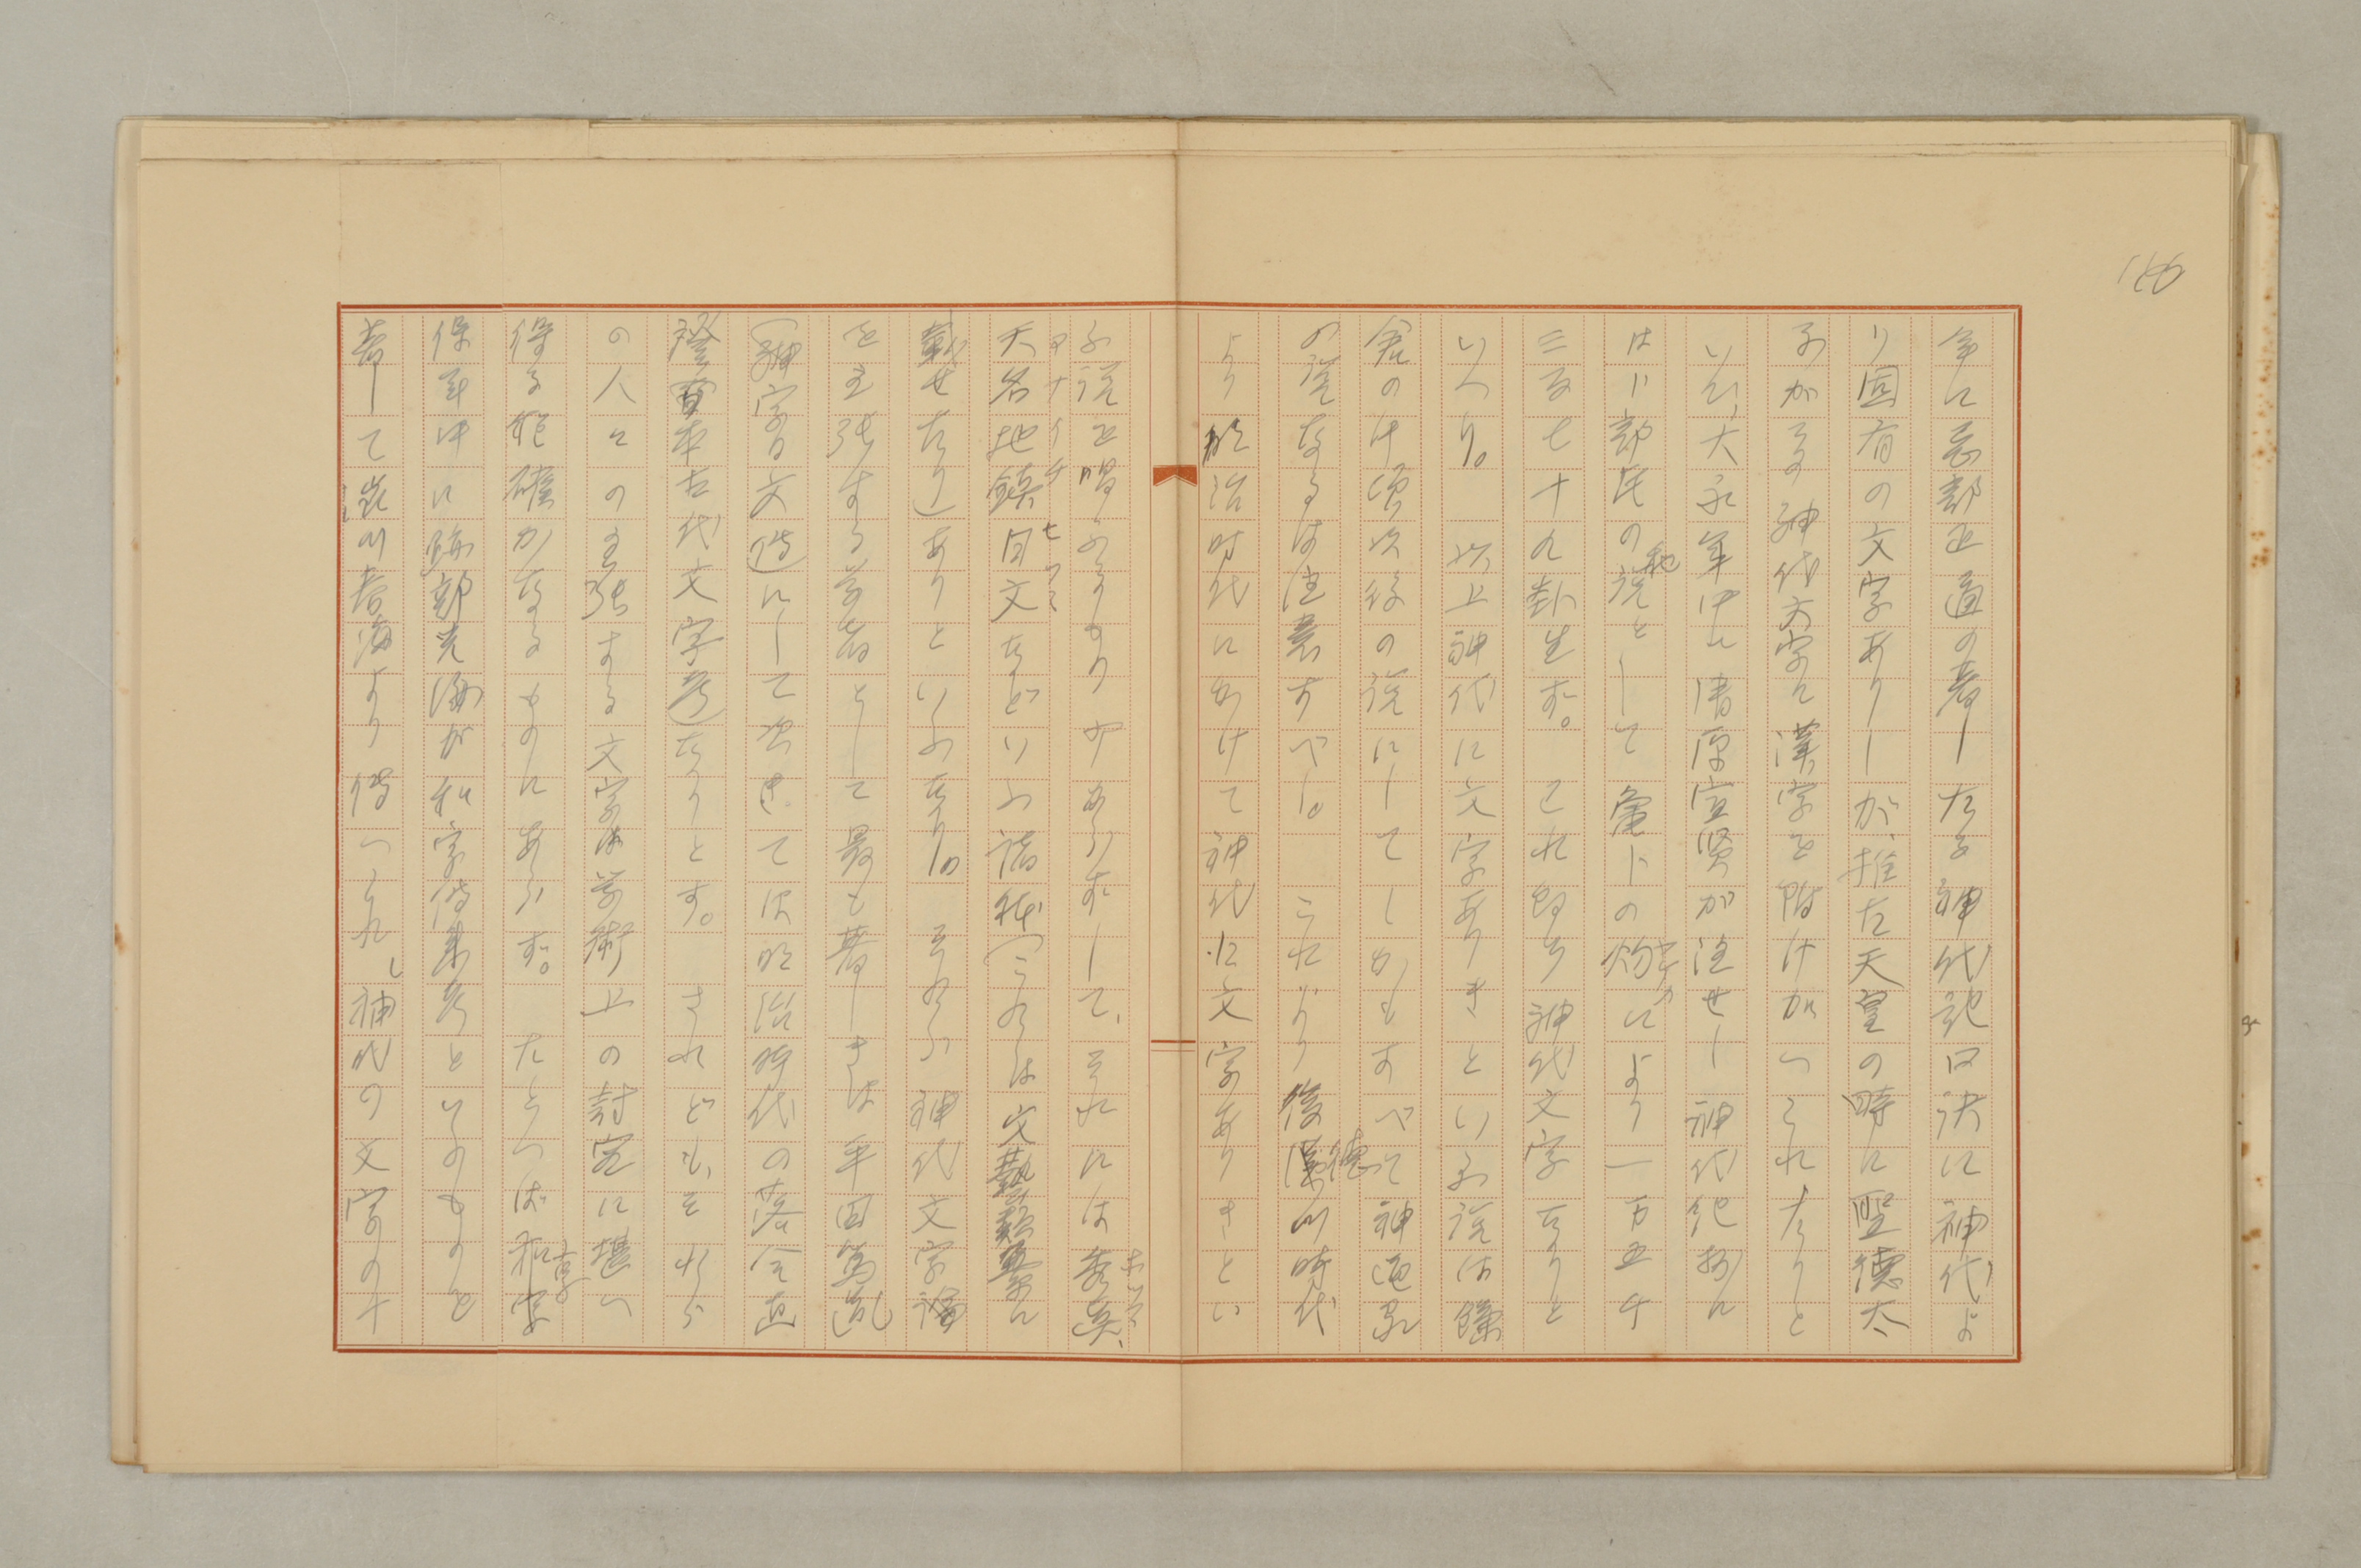 年に忌部正通の著したる神代記口訣に神代よ
り固有の文字ありしが、推古天皇の時に聖徳太
子がその神代文字に漢字を附けがへられたりと
いひ、大永年中に清原宣賢が注せし神代紀抄に
は卜部氏の秘説として亀卜の灼によりて一万五千
三百七十九卦生ず。これ即ち神代文字なりと
いへり。 以上神代に文字ありきといふ説は鎌
倉の中頃以後の説にしてしかもすべて神道家
の説なるは注意すべし。 これより後徳川時代
より明治時代にかけて神代に文字ありきとい
ふ説を唱ふるものやまずして、それには秀真、
天名地鎮、日文などいふ諸種(これらは文藝類纂に
載せたり)ありといふなり。 それら神代文字論
を主張する学者として最も著しきは平田篤胤
(神字日文傳)にして次ぎては明治時代の落合直
澄(日本古代文字考)なりとす。 されども、それら
の人々の主張する文字は学術上の討究に堪へ
得る程確かなるものにあらず。 たとへば和字
保年中に跡部光海が和字傳来考といふものを
著して澁川春海より傳へられし神代の文字の十